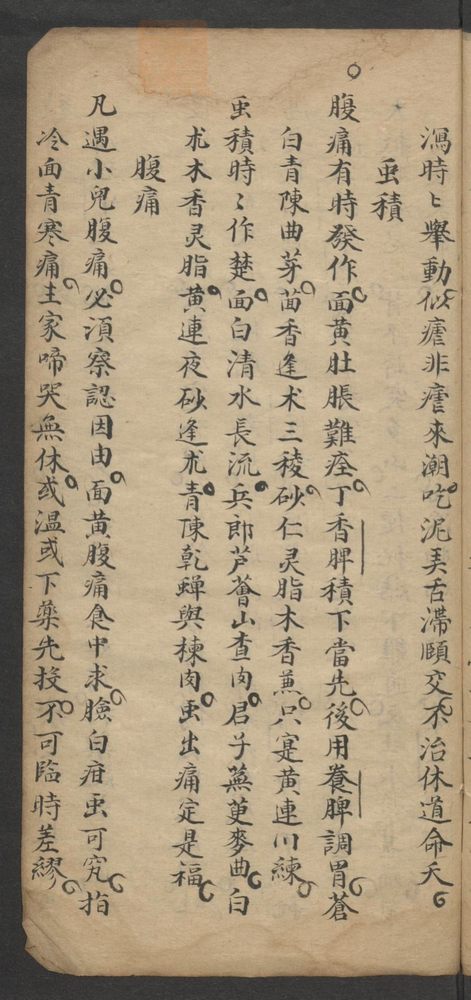 瀉時〻舉動似瘧非瘧來潮吃泥弄舌滯頤交不治休道命夭
虫積
腹痛有時發作面黃肚脹難痊丁香脾積下當先後用養脾調胃蒼
白青陳曲芽茴香逢术三稜砂仁灵脂木香兼只寔黃連川練
虫積時〻作楚面白清水長流兵郎芦薈山查肉君子蕪荑麥曲白
朮木香灵脂黄連夜砂逢朮青陳乾蟬與楝肉虫出痛定是福
腹痛
凡遇小兒腹痛必須察認因由面黃腹痛食中求臉白疳虫可究指
冷面青寒痛主家啼哭無休或温或下藥先投不可臨時差繆